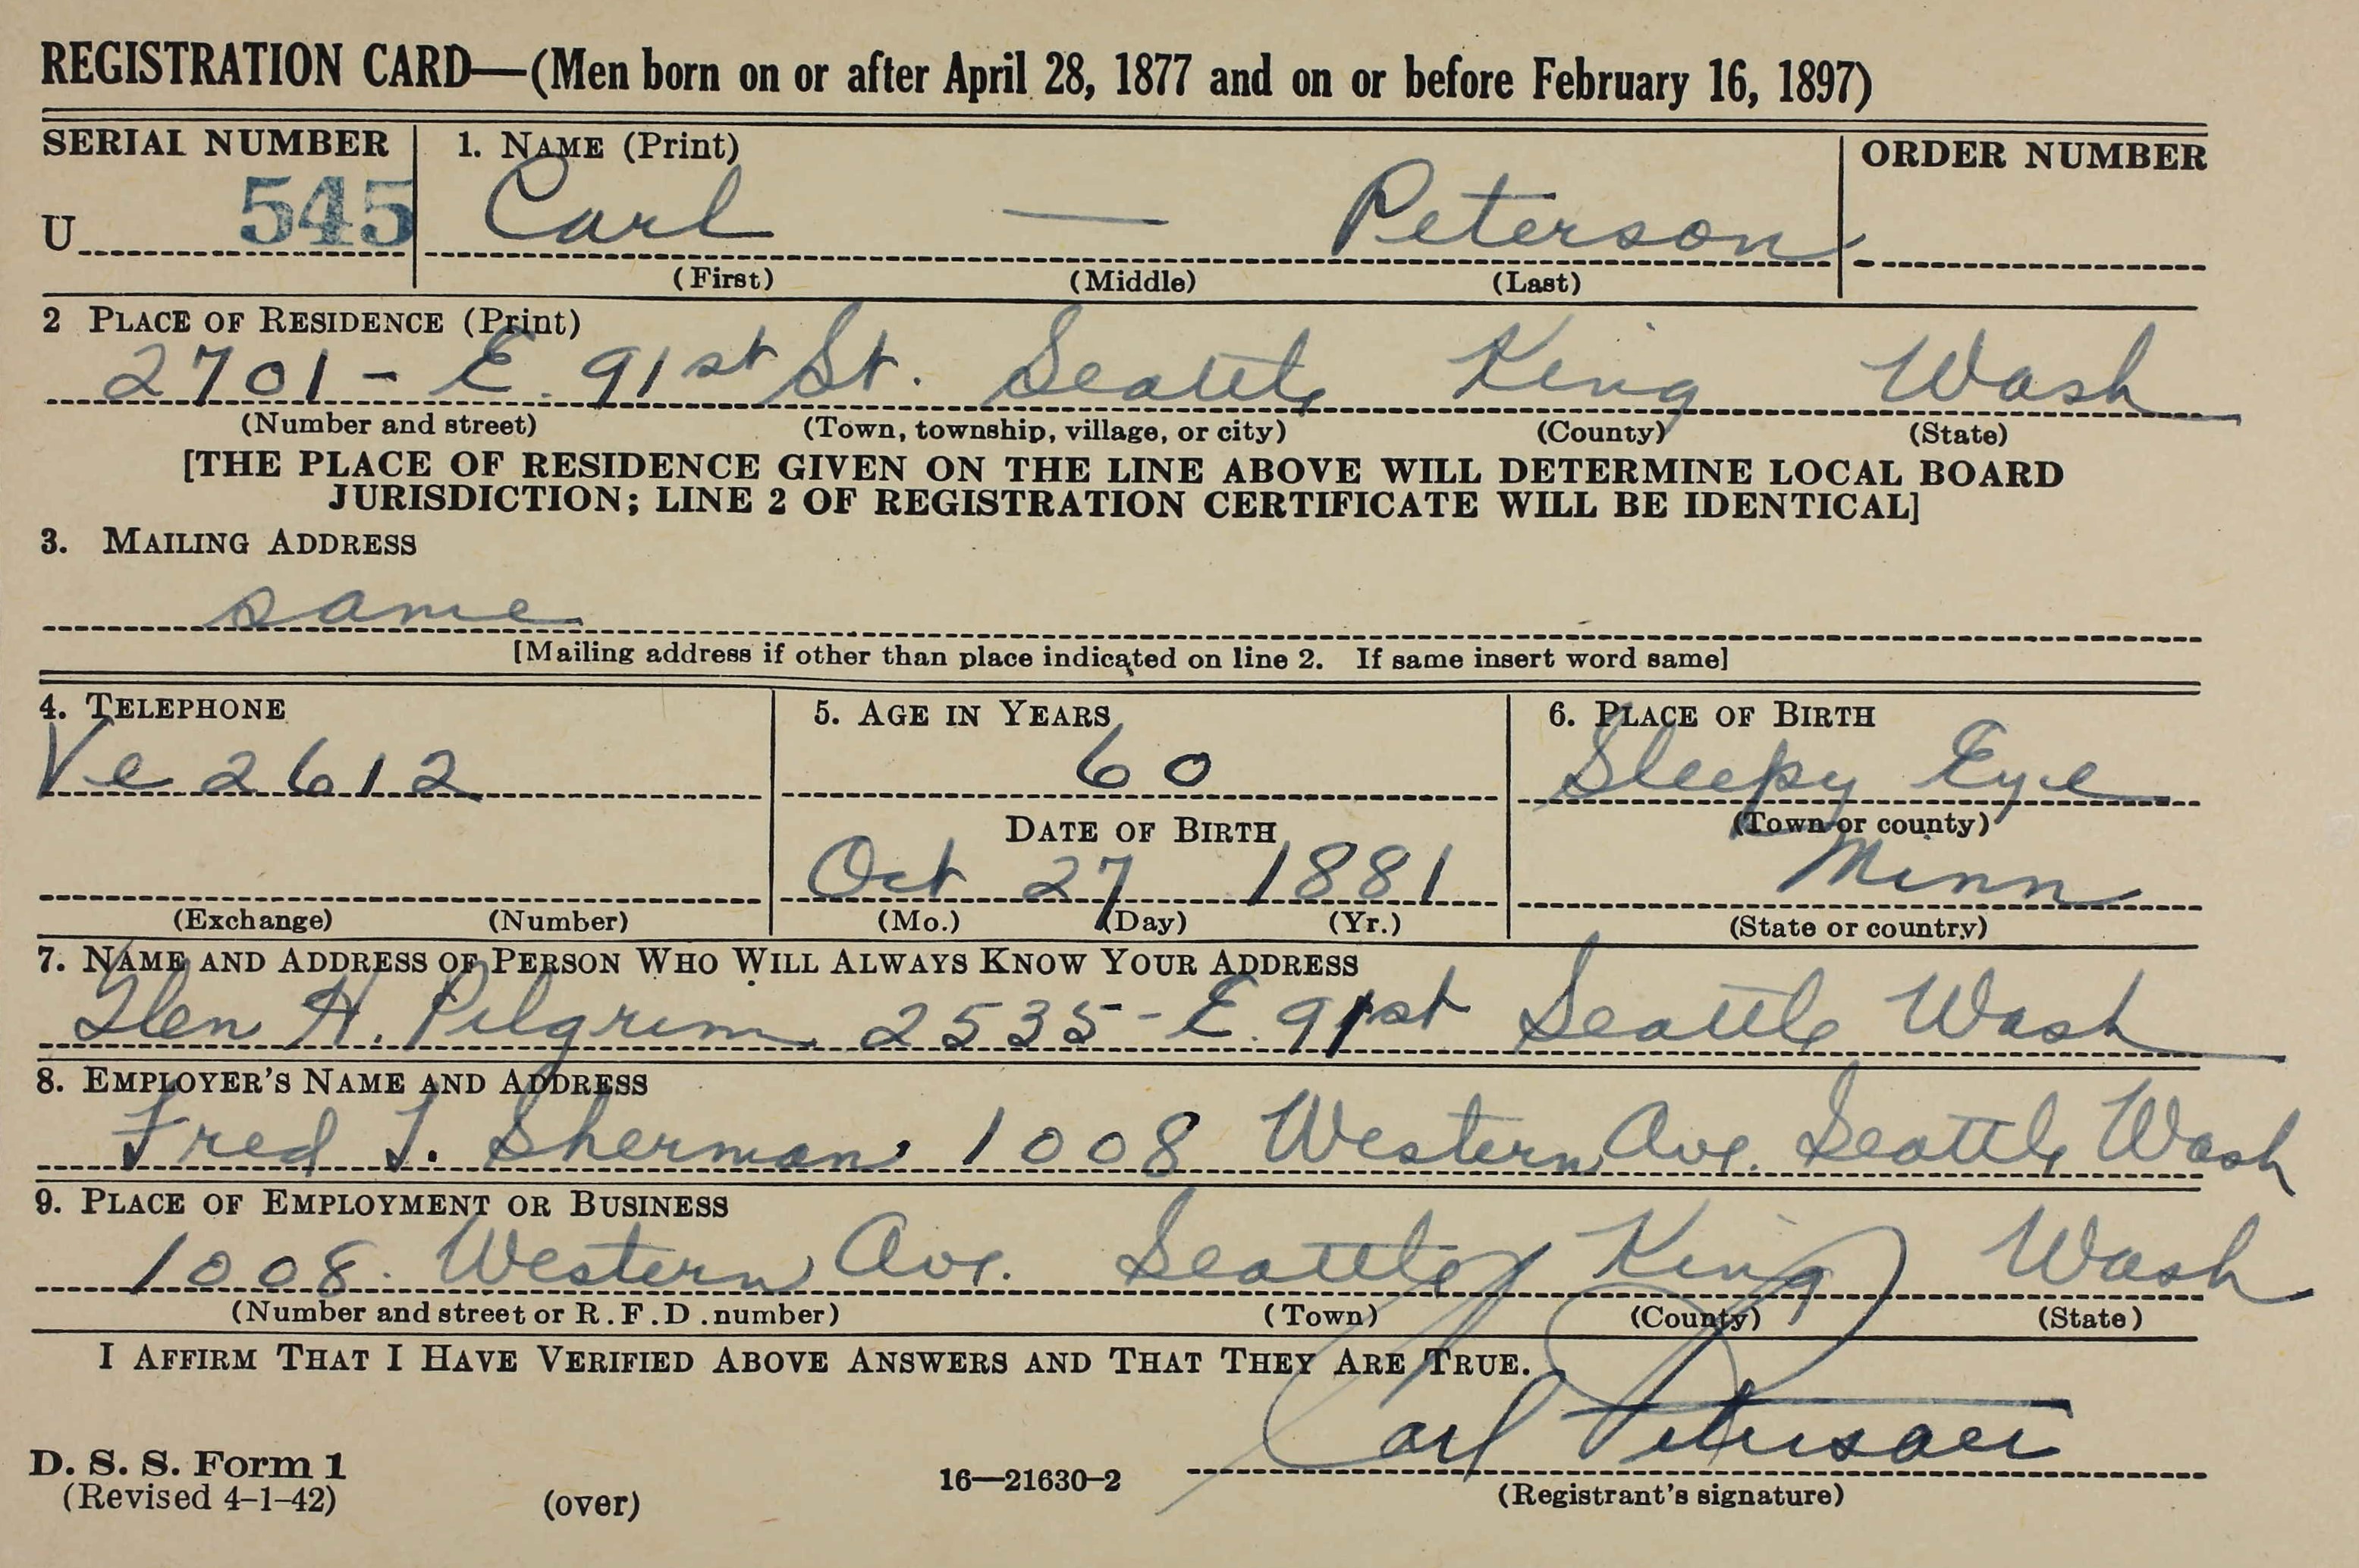 REGISTRATION CARD—(Men born on or after April 28, 1877 and on or before February 16, 1897)
SERIAL NUMBER 1. NAME (Print) ORDER NUMBER
U 545 Carl — Peterson
(First) (Middle) (Last)
2 PLACE OF RESIDENCE (Print)
2701 - E. 91st St. Seattle King Wash
(Number and street) (Town, township, village, or city) (County) (State)
[THE PLACE OF RESIDENCE GIVEN ON THE LINE ABOVE WILL DETERMINE LOCAL BOARD
JURISDICTION; LINE 2 OF REGISTRATION CERTIFICATE WILL BE IDENTICAL]
3. MAILING ADDRESS
same
[Mailing address if other than place indicated on line 2. If same insert word same]
4. TELEPHONE 5. AGE IN YEARS 6. PLACE OF BIRTH
Ve 2612 60 Sleepy Eye
DATE OF BIRTH (Town or county)
Oct 27 1881 Minn
(Exchange) (Number) (Mo.) (Day) (Yr.) (State or country)
7. NAME AND ADDRESS OF PERSON WHO WILL ALWAYS KNOW YOUR ADDRESS
Glen H. Pilgrim 2535 - E. 91st Seattle Wash
8. EMPLOYER'S NAME AND ADDRESS
Fred T. Sherman. 1008 Western Ave. Seattle Wash
9. PLACE OF EMPLOYMENT OR BUSINESS
1008. Western Ave. Seattle King Wash
(Number and street or R.F.D. number) (Town) (County) (State)
I AFFIRM THAT I HAVE VERIFIED ABOVE ANSWERS AND THAT THEY ARE TRUE.
Carl Peterson
D. S. S. Form 1
(Revised 4-1-42) (over) 16—21630-2 (Registrant's signature)